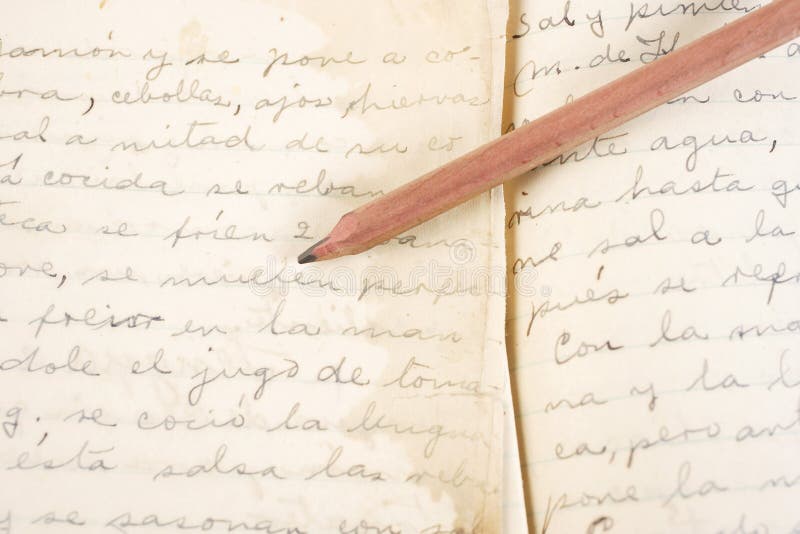 amón y se pone a co-
bra, cebollas, ajos, hiervas
al a mitad de su co
cocida se reban
teca se fríen 2
se muelen
freior en la man
dole el jugo de toma-
g. se coció la lengua
ésta salsa las reba
y se sasonan con sal
Sal y pimien
m. de
con
agua,
rina hasta q
ne sal a la
pués se
Con la
na y la
ca, pero ant
pone la
dreamstime